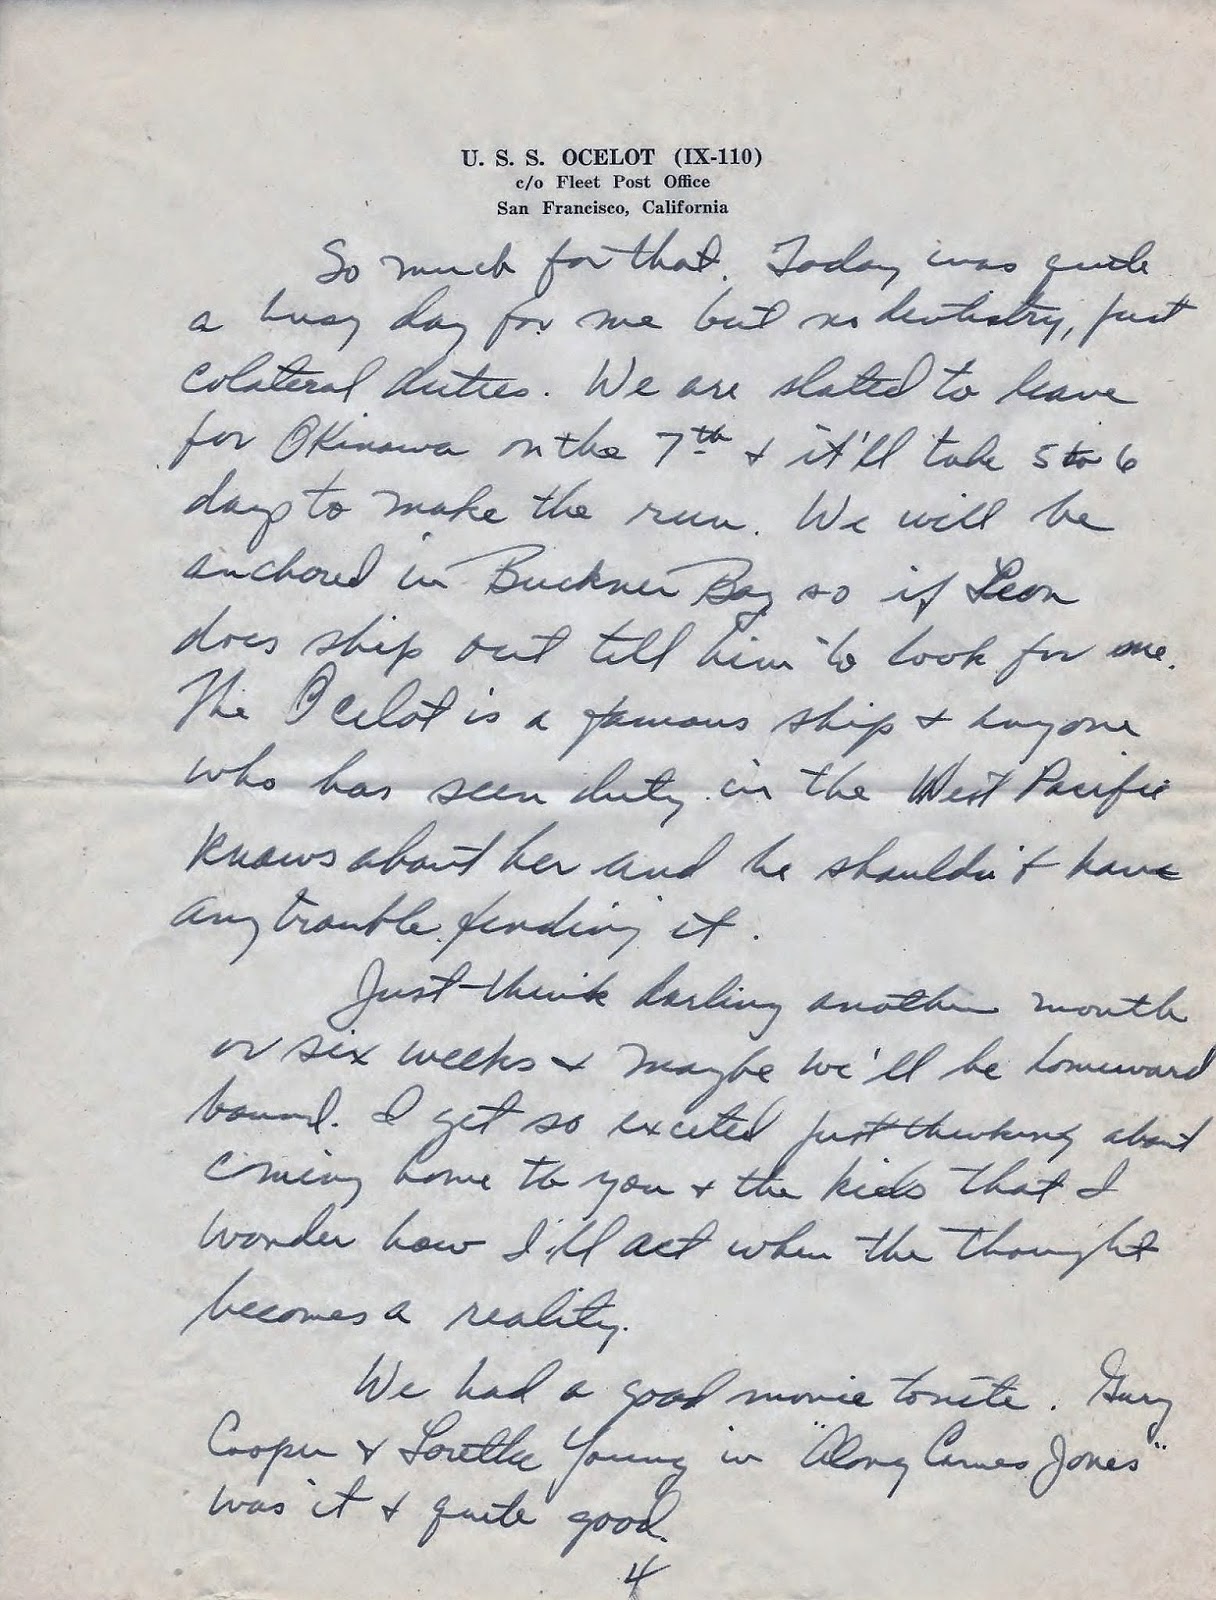 U. S. S. OCELOT (IX-110)
c/o Fleet Post Office
San Francisco, California
So much for that. Today was quite
a busy day for me but no dentistry, just
colateral duties. We are slated to leave
for Okinawa on the 7th & it'll take 5 to 6
days to make the run. We will be
anchored in Buckner Bay so if Leon
does ship out tell him to look for me.
The Ocelot is a famous ship & anyone
who has seen duty in the West Pacific
knows about her and he shouldn't have
any trouble finding it.
Just think darling another month
or six weeks & maybe we'll be homeward
bound. I get so excited just thinking about
coming home to you & the kids that I
wonder how I'll act when the thought
becomes a reality.
We had a good movie tonite. Gary
Cooper & Loretta Young in "Along Comes Jones"
was it & quite good.
4